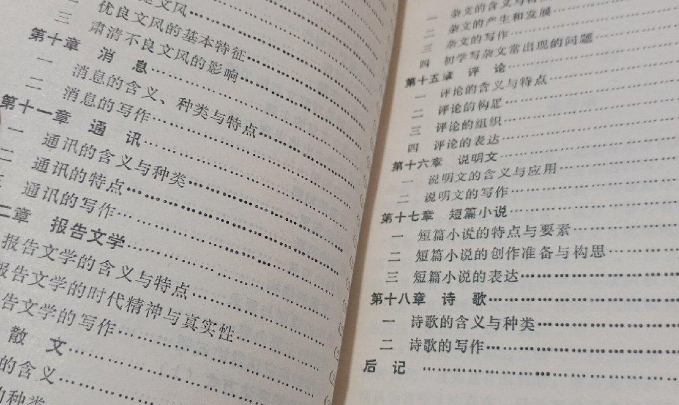 文风
二 优良文风的基本特征
三 肃清不良文风的影响
第十章 消息
一 消息的含义、种类与特点
二 消息的写作
第十一章 通讯
一 通讯的含义与种类
二 通讯的特点
三 通讯的写作
二章 报告文学
报告文学的含义与特点
报告文学的时代精神与真实性
告文学的写作
散文
的含义
的种类
一 杂文的含义与特
二 杂文的产生和发展
三 杂文的写作
四 初学写杂文常出现的问题
第十五章 评论
一 评论的含义与特点
二 评论的构思
三 评论的组织
四 评论的表达
第十六章 说明文
一 说明文的含义与应用
二 说明文的写作
第十七章 短篇小说
一 短篇小说的特点与要素
二 短篇小说的创作准备与构思
三 短篇小说的表达
第十八章 诗歌
一 诗歌的含义与种类
二 诗歌的写作
后记